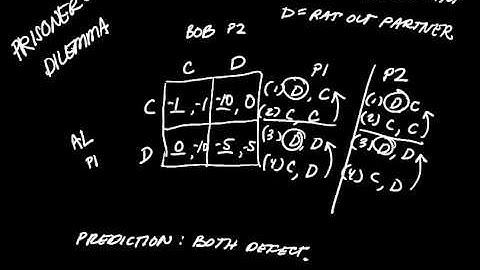 PRISONER'S
DILEMMA
D = RAT OUT PARTNER
BOB P2
C D
C -1, -1 -10, 0
D 0, -10 -5, -5
AL
P1
P1
(1) D, C
(2) C, C
(3) D, D
(4) C, D
P2
(1) D C
(2) C, C
(3) D, D
(4) C, D
PREDICTION: BOTH DEFECT.